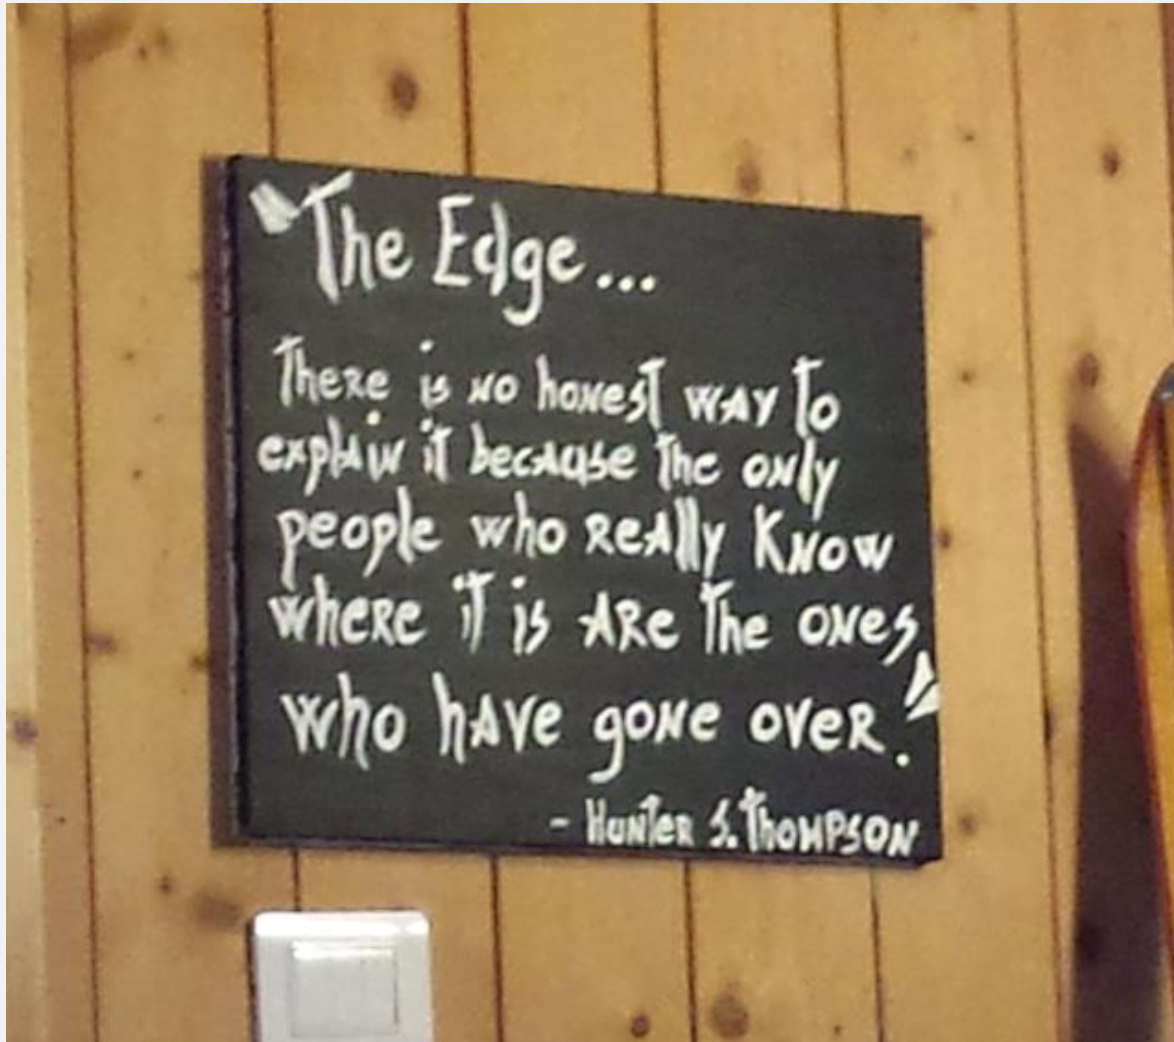 "The Edge...
There is no honest way to
explain it because the only
people who really know
where it is are the ones
who have gone over."
- Hunter S. Thompson